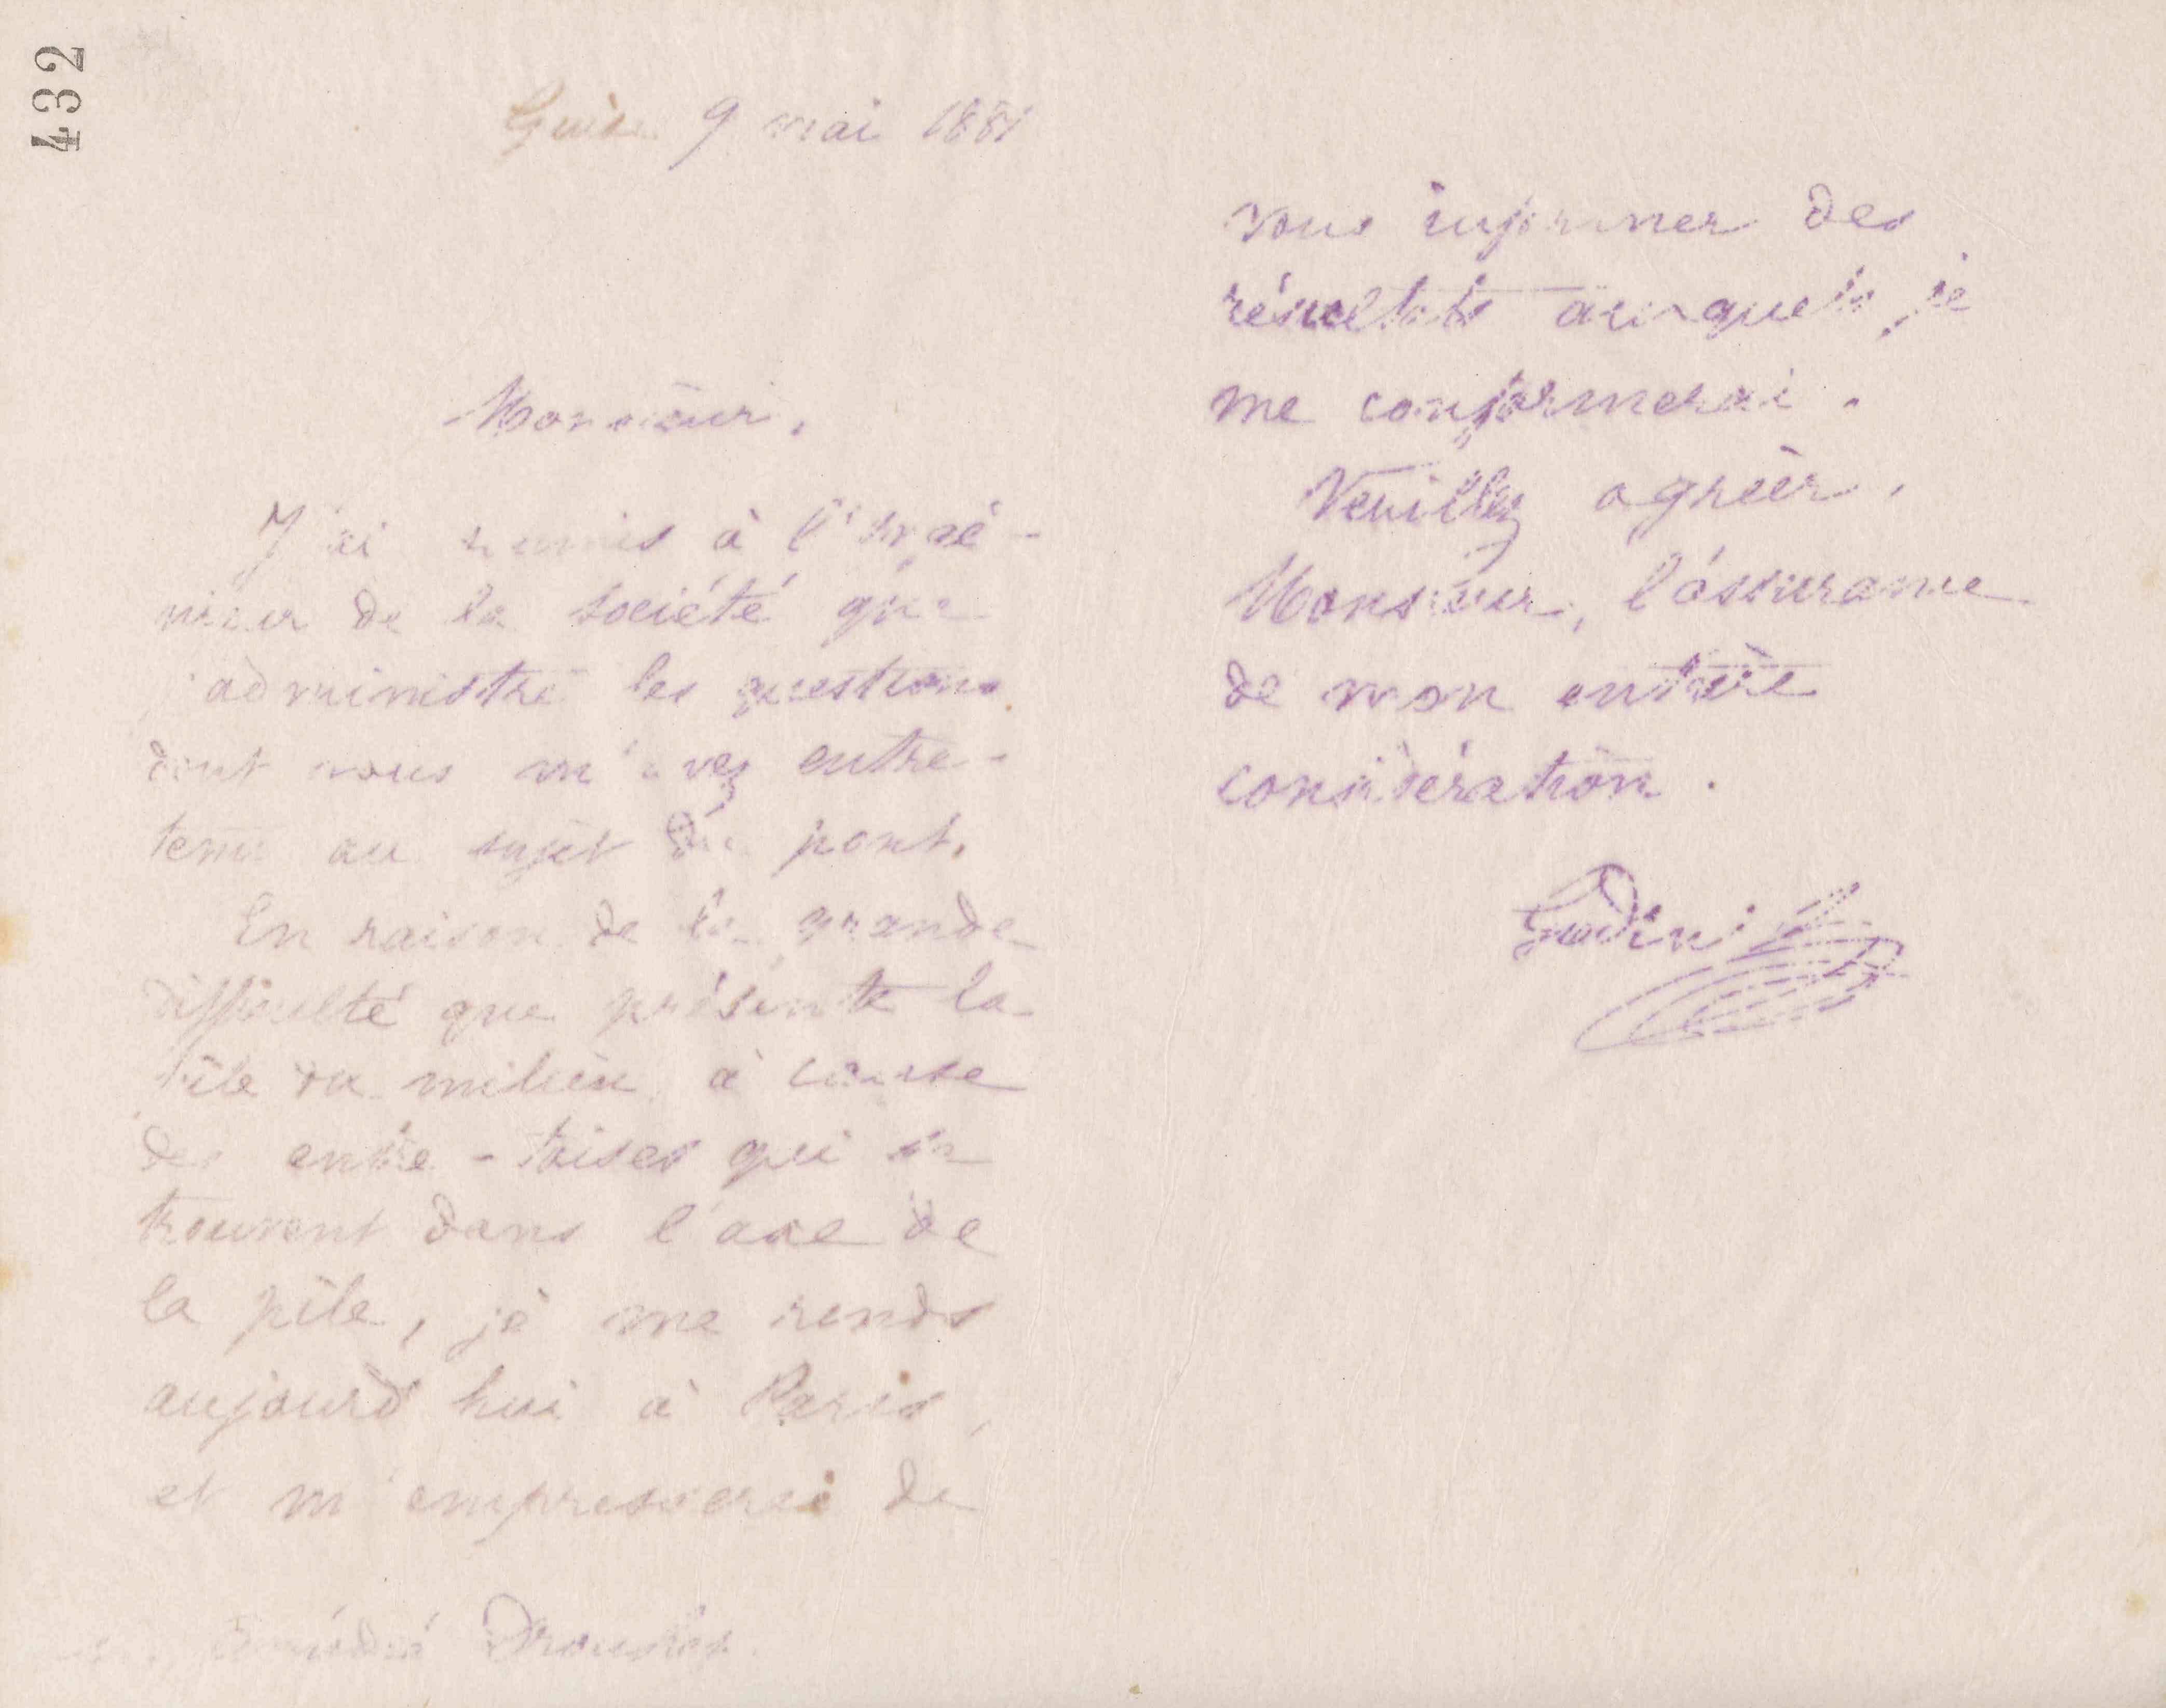 432
Guise 9 mai 1881
Monsieur,
J'ai remis à l'ingé-
nieur de la société que
j'administre les questions
dont vous m'avez entre-
tenu au sujet du pont.
En raison de la grande
difficulté que présente la
pile du milieu à cause
des entre-toises qui se
trouvent dans l'axe de
la pile, je me rends
aujourd'hui à Paris,
et m'empresserai de
Amédée
vous informer des
résultats auxquels je
me conformerai.
Veuillez agréer,
Monsieur, l'assurance
de mon entière
considération.
Godin